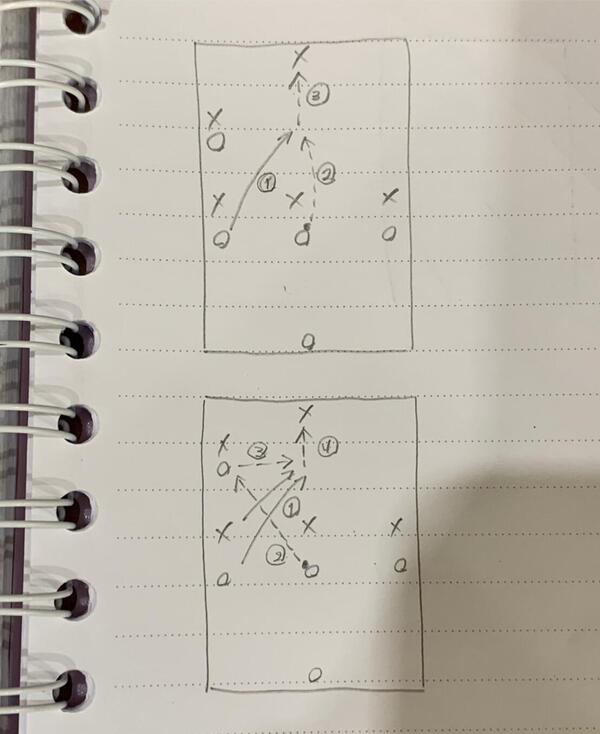 X
③
X
O
① ②
X X X
O O O
O
X
X ③ ④
O
①
X X X
②
O O O
O